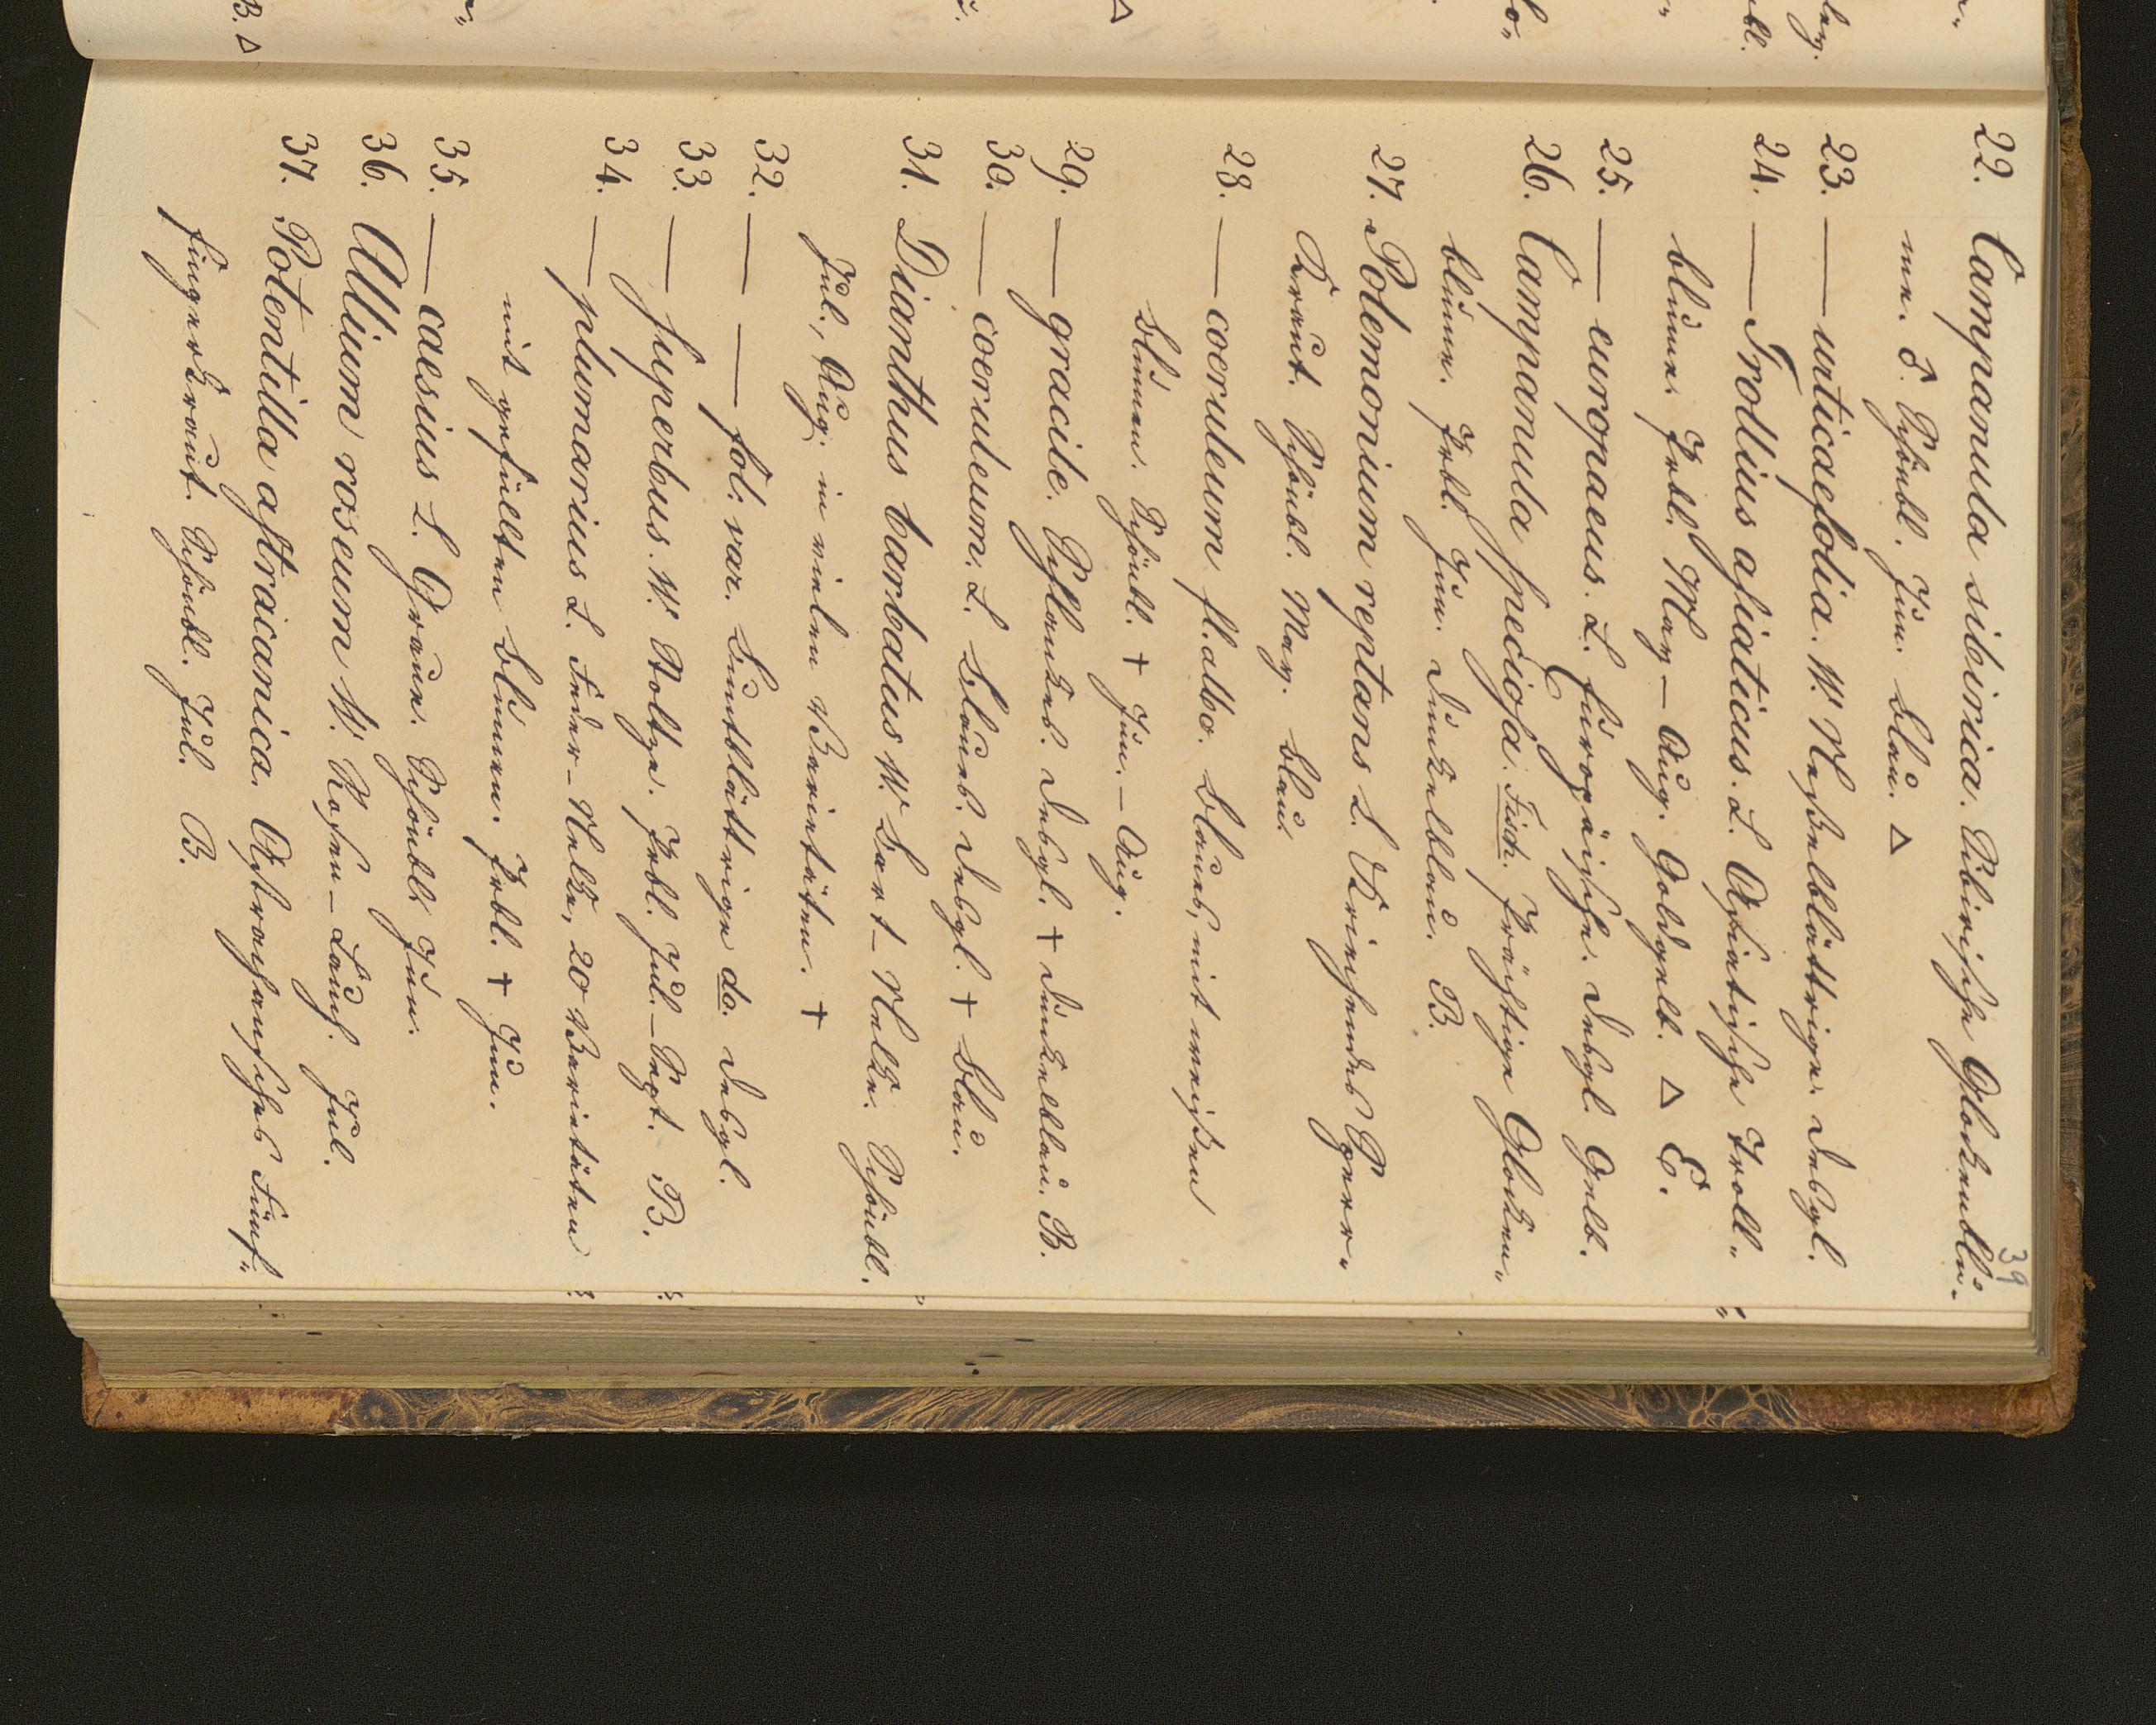 39
22. Campanula sibirica. Sibirische Glockenblu-
me. ♂. Schönbl. Jun. blau. △
23. —— urticaefolia. W. Neßelblättrige. desgl.
24. —— Trollius asiaticus. L. Asiatische Troll„
blume. Jrbl. May – Aug. Goldgelb. △ E.
25. —— europaeus. L. Europäische. desgl. Gelb.
26. Campanula speciosa. Fisch. Prächtige Glocken„
blume. Jrbl. Jun. dunkelblau. B.
27. Polemonium reptans L. Kriechendes Sperr„
Kraut. Schönbl. May. blau.
28. —— coeruleum fl. albo. blaues, mit weißen
Blumen. Schönbl. + Jun. – Aug.
29. —— gracile. Schlankes. desgl. + dunkelblau. B.
30. —— coeruleum. L. Blaues. desgl. + blau.
31. Dianthus barbatus W. Bart-Nelke. Schönbl.
Jul., Aug. in vielen Varietäten. +
32. —— —— fol. var. Buntblättrige do. desgl.
33. —— superbus. W. Stolze. Jrbl. Jul – Sept. B.
34. —— plumarius L. Feder-Nelke, 20 Varietäten
mit gefüllten Blumen. Jrbl. + Jun.
35. —— caesius L. Graue. Schönbl. Jun.
36. Allium roseum W. Rosen-Lauch. Jul.
37. Potentilla astracanica. Astrachansches Fünf„
fingerkraut. Schönbl. Jul. B.